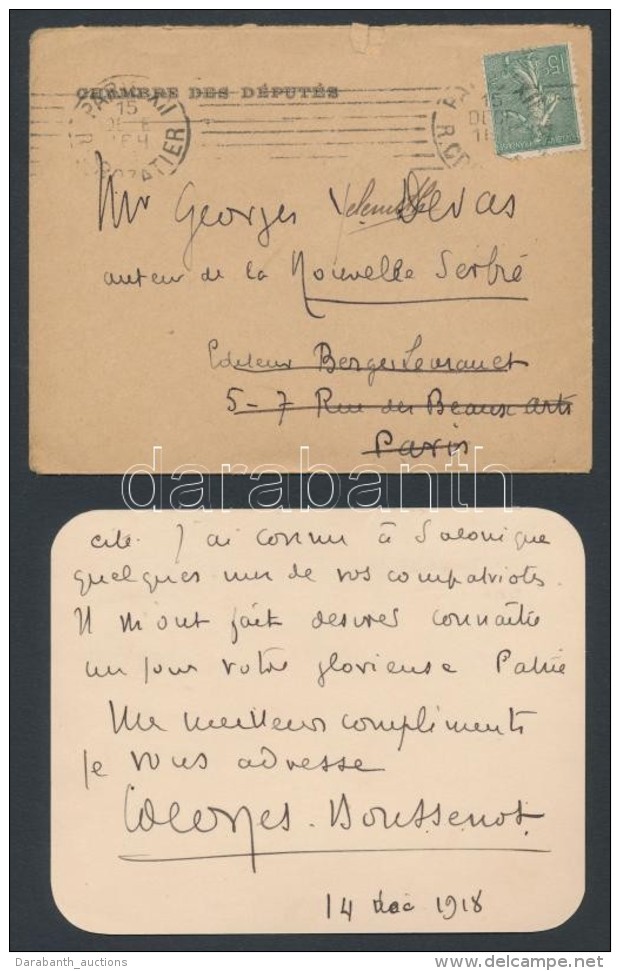 CHAMBRE DES DÉPUTÉS
PARIS XII
15
R. CROZATIER
15
Mr Georges Devas
auteur de la Nouvelle Serbie
Editeur Berger Levrault
5-7 Rue des Beaux arts
Paris
darabanth
cité. J'ai connu à Salonique
quelques uns de vos compatriotes.
Il m'ont fait desirer connaître
un jour votre glorieuse Patrie
Mes meilleurs compliments
je vous adresse
Georges Boussenot
14 dec 1918
Darabanth_auctions
delcampe.net